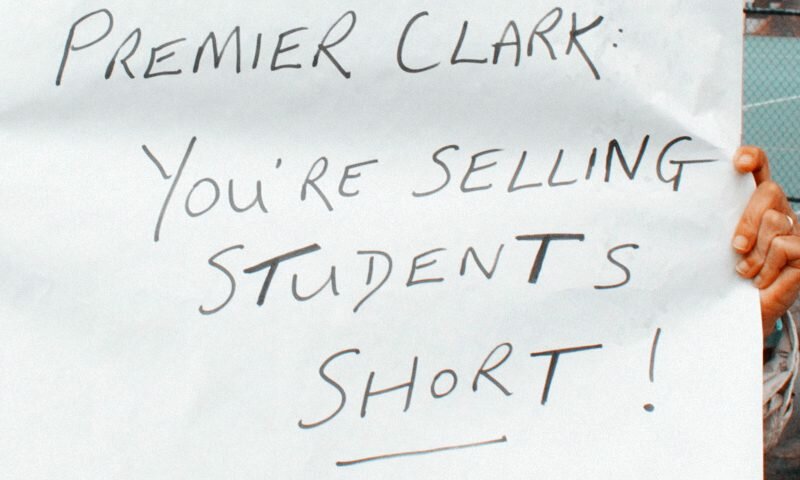 PREMIER CLARK:
YOU'RE SELLING
STUDENTS
SHORT!